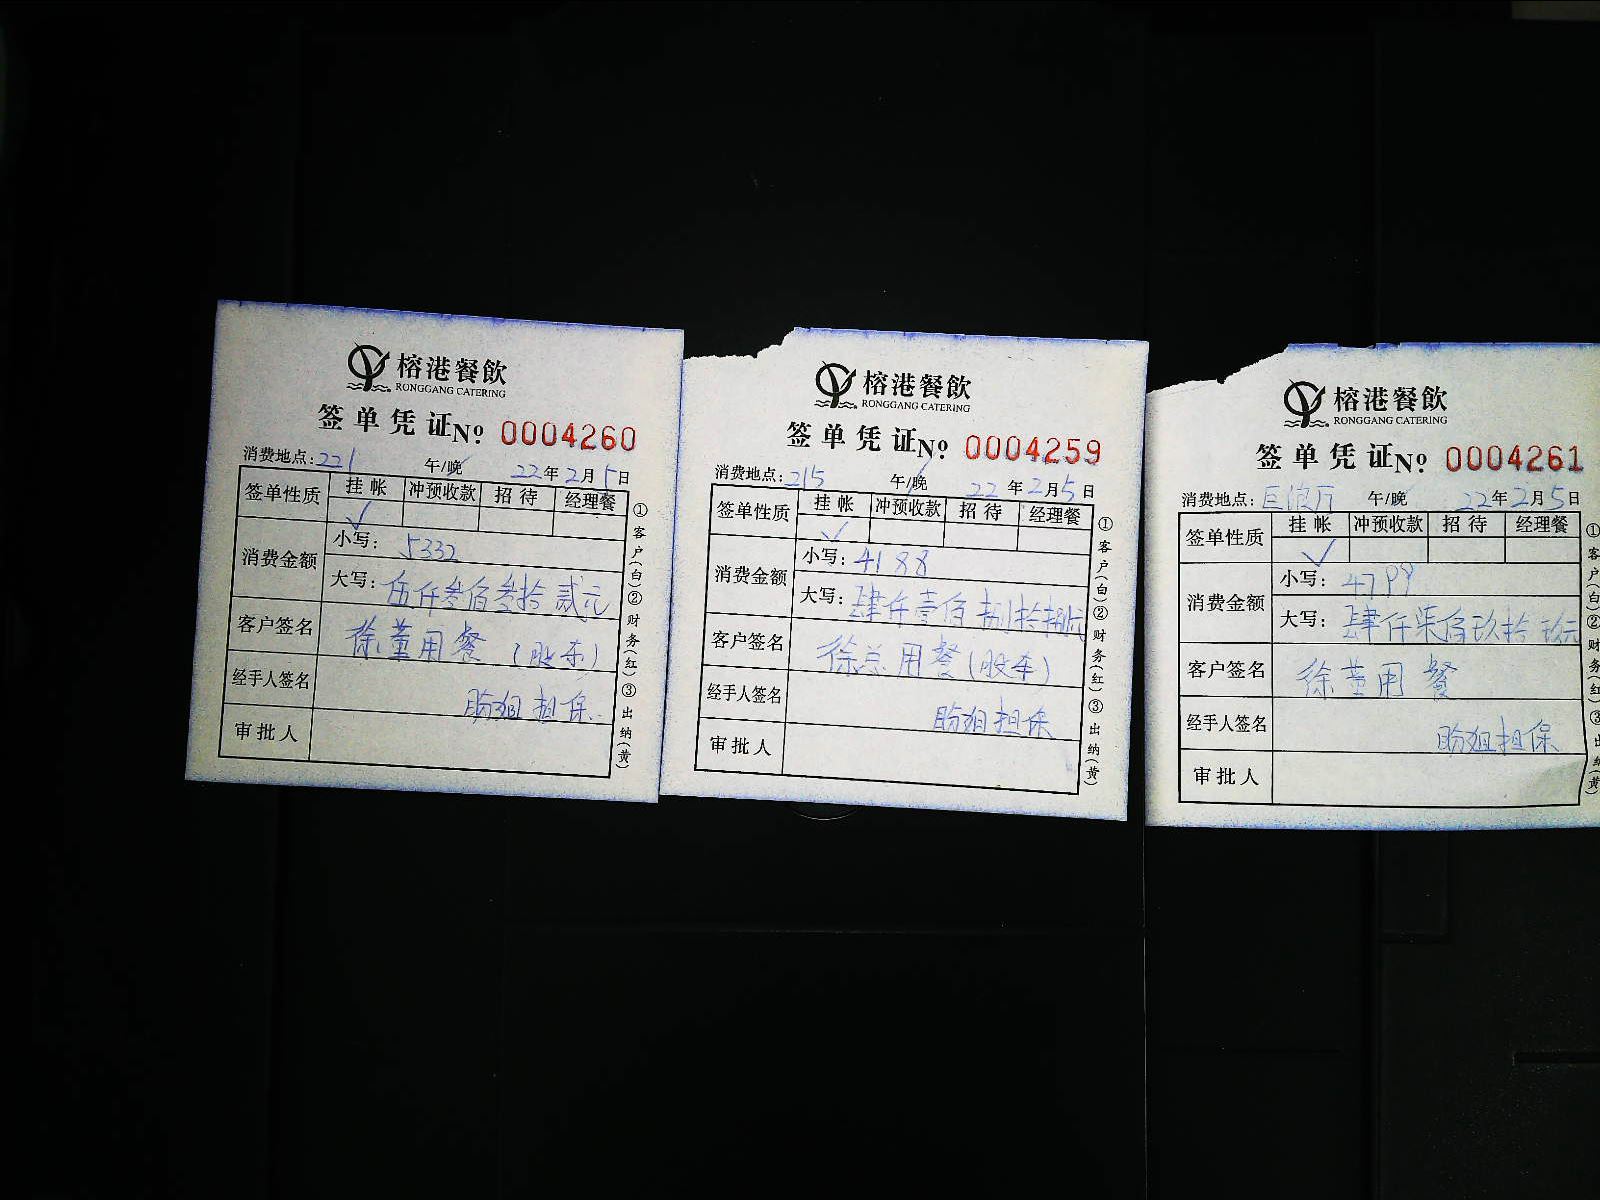 榕港餐飲
RONGGANG CATERING
签单凭证 No 0004260
消费地点:221 午/晚 22年2月5日
签单性质 挂帐 冲预收款 招待 经理餐
✓
消费金额 小写: 5332
大写: 伍仟叁佰叁拾贰元
客户签名 徐董用餐(股东)
经手人签名 盼姐担保
审批人
①客户(白)②财务(红)③出纳(黄)
榕港餐飲
RONGGANG CATERING
签单凭证 No 0004259
消费地点:215 午/晚 22年2月5日
签单性质 挂帐 冲预收款 招待 经理餐
✓
消费金额 小写: 4188
大写: 肆仟壹佰捌拾捌元
客户签名 徐总用餐(股东)
经手人签名 盼姐担保
审批人
①客户(白)②财务(红)③出纳(黄)
榕港餐飲
RONGGANG CATERING
签单凭证 No 0004261
消费地点: 午/晚 22年2月5日
签单性质 挂帐 冲预收款 招待 经理餐
✓
消费金额 小写: 4799
大写: 肆仟柒佰玖拾玖元
客户签名 徐董用餐
经手人签名 盼姐担保
审批人
①客户(白)②财务(红)③出纳(黄)